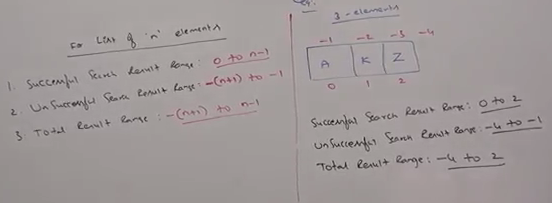 For List of 'n' elements
1. Successful Search Result Range: 0 to n-1
2. UnSuccessful Search Result Range: -(n+1) to -1
3. Total Result Range: -(n+1) to n-1
Eg:
3-elements
-1 -2 -3 -4
A K Z
0 1 2
Successful Search Result Range: 0 to 2
UnSuccessful Search Result Range: -4 to -1
Total Result Range: -4 to 2